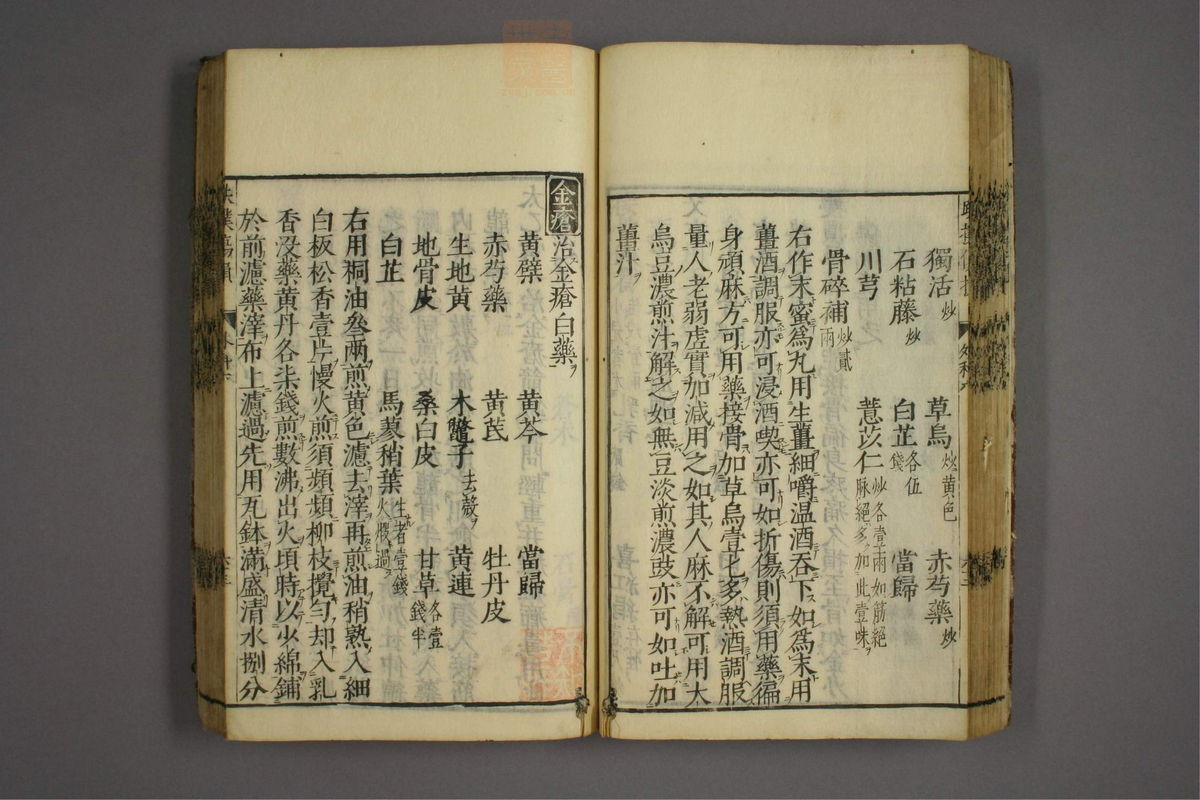 獨活炒　草烏炒黄色　赤芍藥炒
石粘藤炒　白芷各伍錢　當歸
川芎　薏苡仁炒各壹兩如筋絕脉絕多加此壹味
骨碎補炒貳兩
右作末蜜爲丸用生薑細嚼温酒吞下如爲末用
薑酒調服亦可浸酒喫亦可如折傷則須用藥徧
身頑麻方可用藥接骨加草烏壹匕多熱酒調服
量人老弱虚實加減用之如其人麻不解可用大
烏豆濃煎汁解之如無豆淡煎濃豉亦可如吐加
薑汁
金瘡 治金瘡白藥
黄檗　黄芩　當歸
赤芍藥　黄芪　牡丹皮
生地黄　木鼈子去殼　黄連
地骨皮　桑白皮　甘草各壹錢半
白芷　馬蓼稍葉生者壹錢火㷟過
右用桐油叄兩煎黄色濾去滓再煎油稍熟入細
白板松香壹片慢火煎須頻頻柳枝攪勻却入乳
香没藥黄丹各柒錢煎數沸出火頃時以少綿鋪
於前濾藥滓布上濾過先用瓦鉢滿盛清水捌分